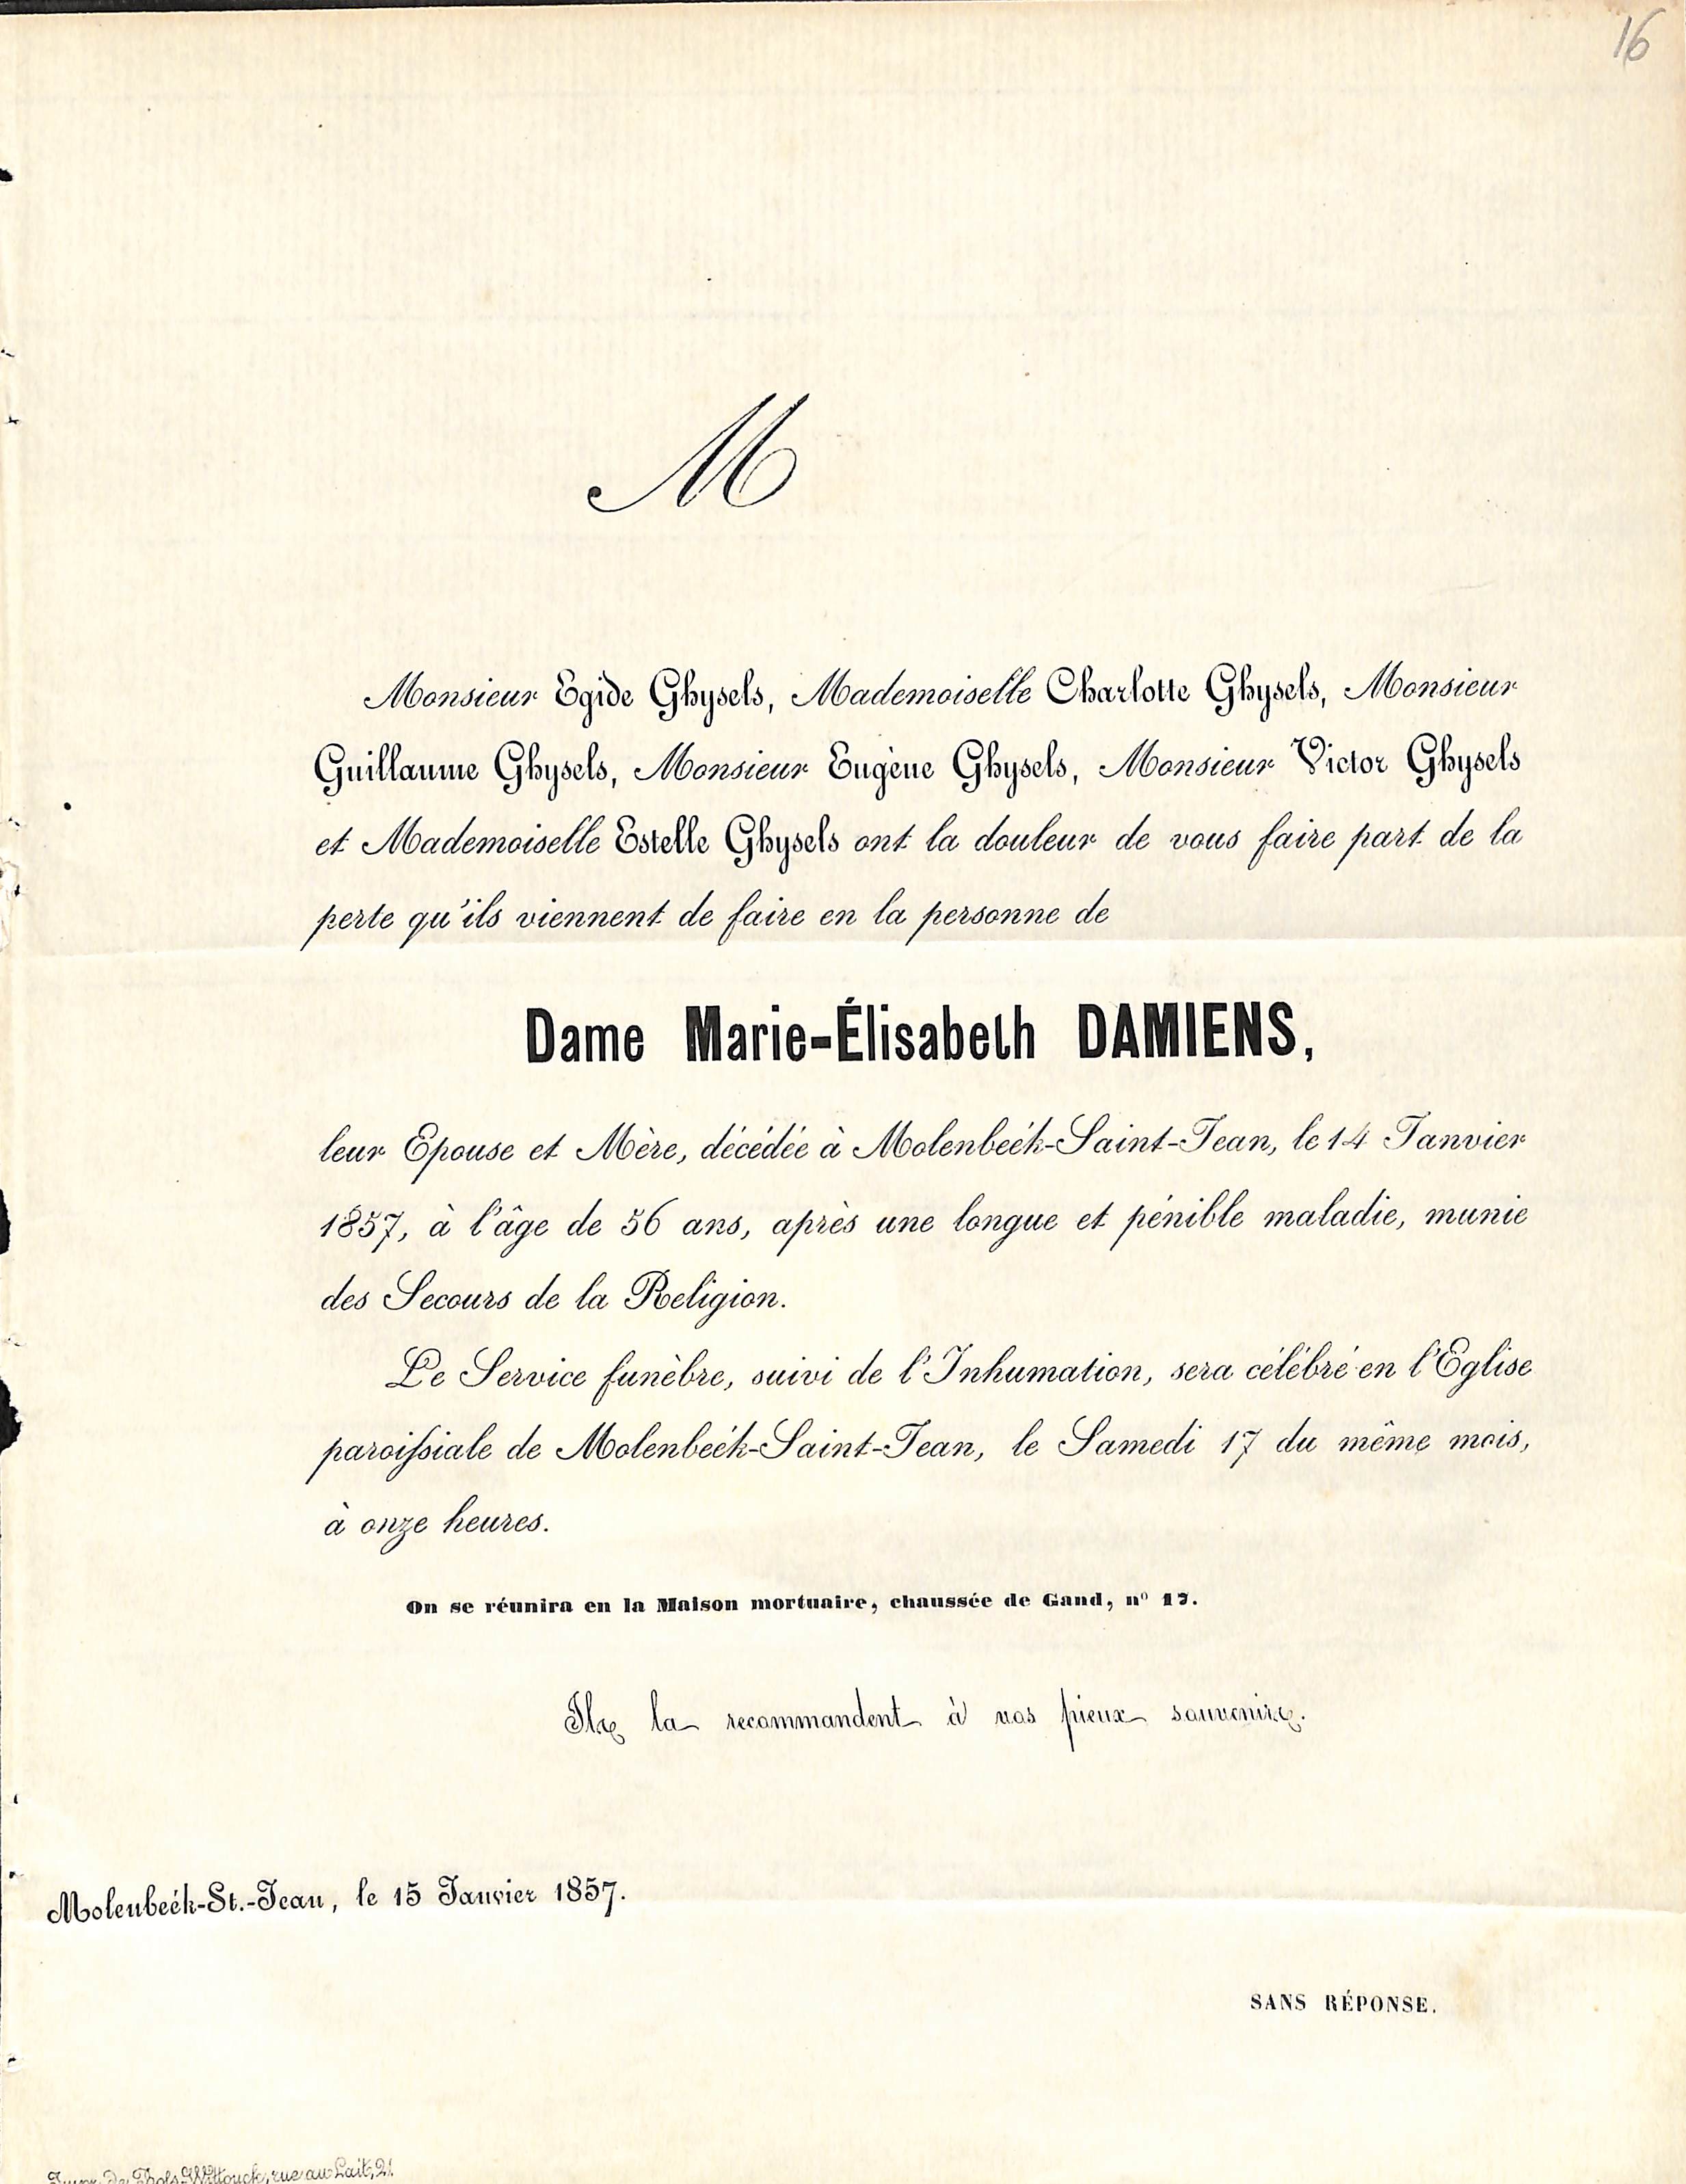 16
M
Monsieur Egide Ghysels, Mademoiselle Charlotte Ghysels, Monsieur
Guillaume Ghysels, Monsieur Eugène Ghysels, Monsieur Victor Ghysels
et Mademoiselle Estelle Ghysels ont la douleur de vous faire part de la
perte qu'ils viennent de faire en la personne de
Dame Marie-Élisabeth DAMIENS,
leur Epouse et Mère, décédée à Molenbeék-Saint-Jean, le 14 Janvier
1857, à l'âge de 56 ans, après une longue et pénible maladie, munie
des Secours de la Religion.
Le Service funèbre, suivi de l'Inhumation, sera célébré en l'Eglise
paroiſsiale de Molenbeék-Saint-Jean, le Samedi 17 du même mois,
à onze heures.
On se réunira en la Maison mortuaire, chaussée de Gand, nº 17.
Ils la recommandent à vos pieux souvenirs.
Molenbeék-St.-Jean, le 15 Janvier 1857.
SANS RÉPONSE.
Impr. de Wittouck, rue au Lait, 21